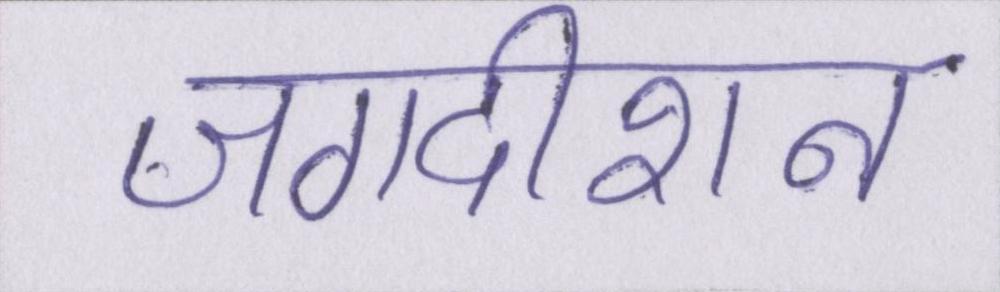 जगदीशन